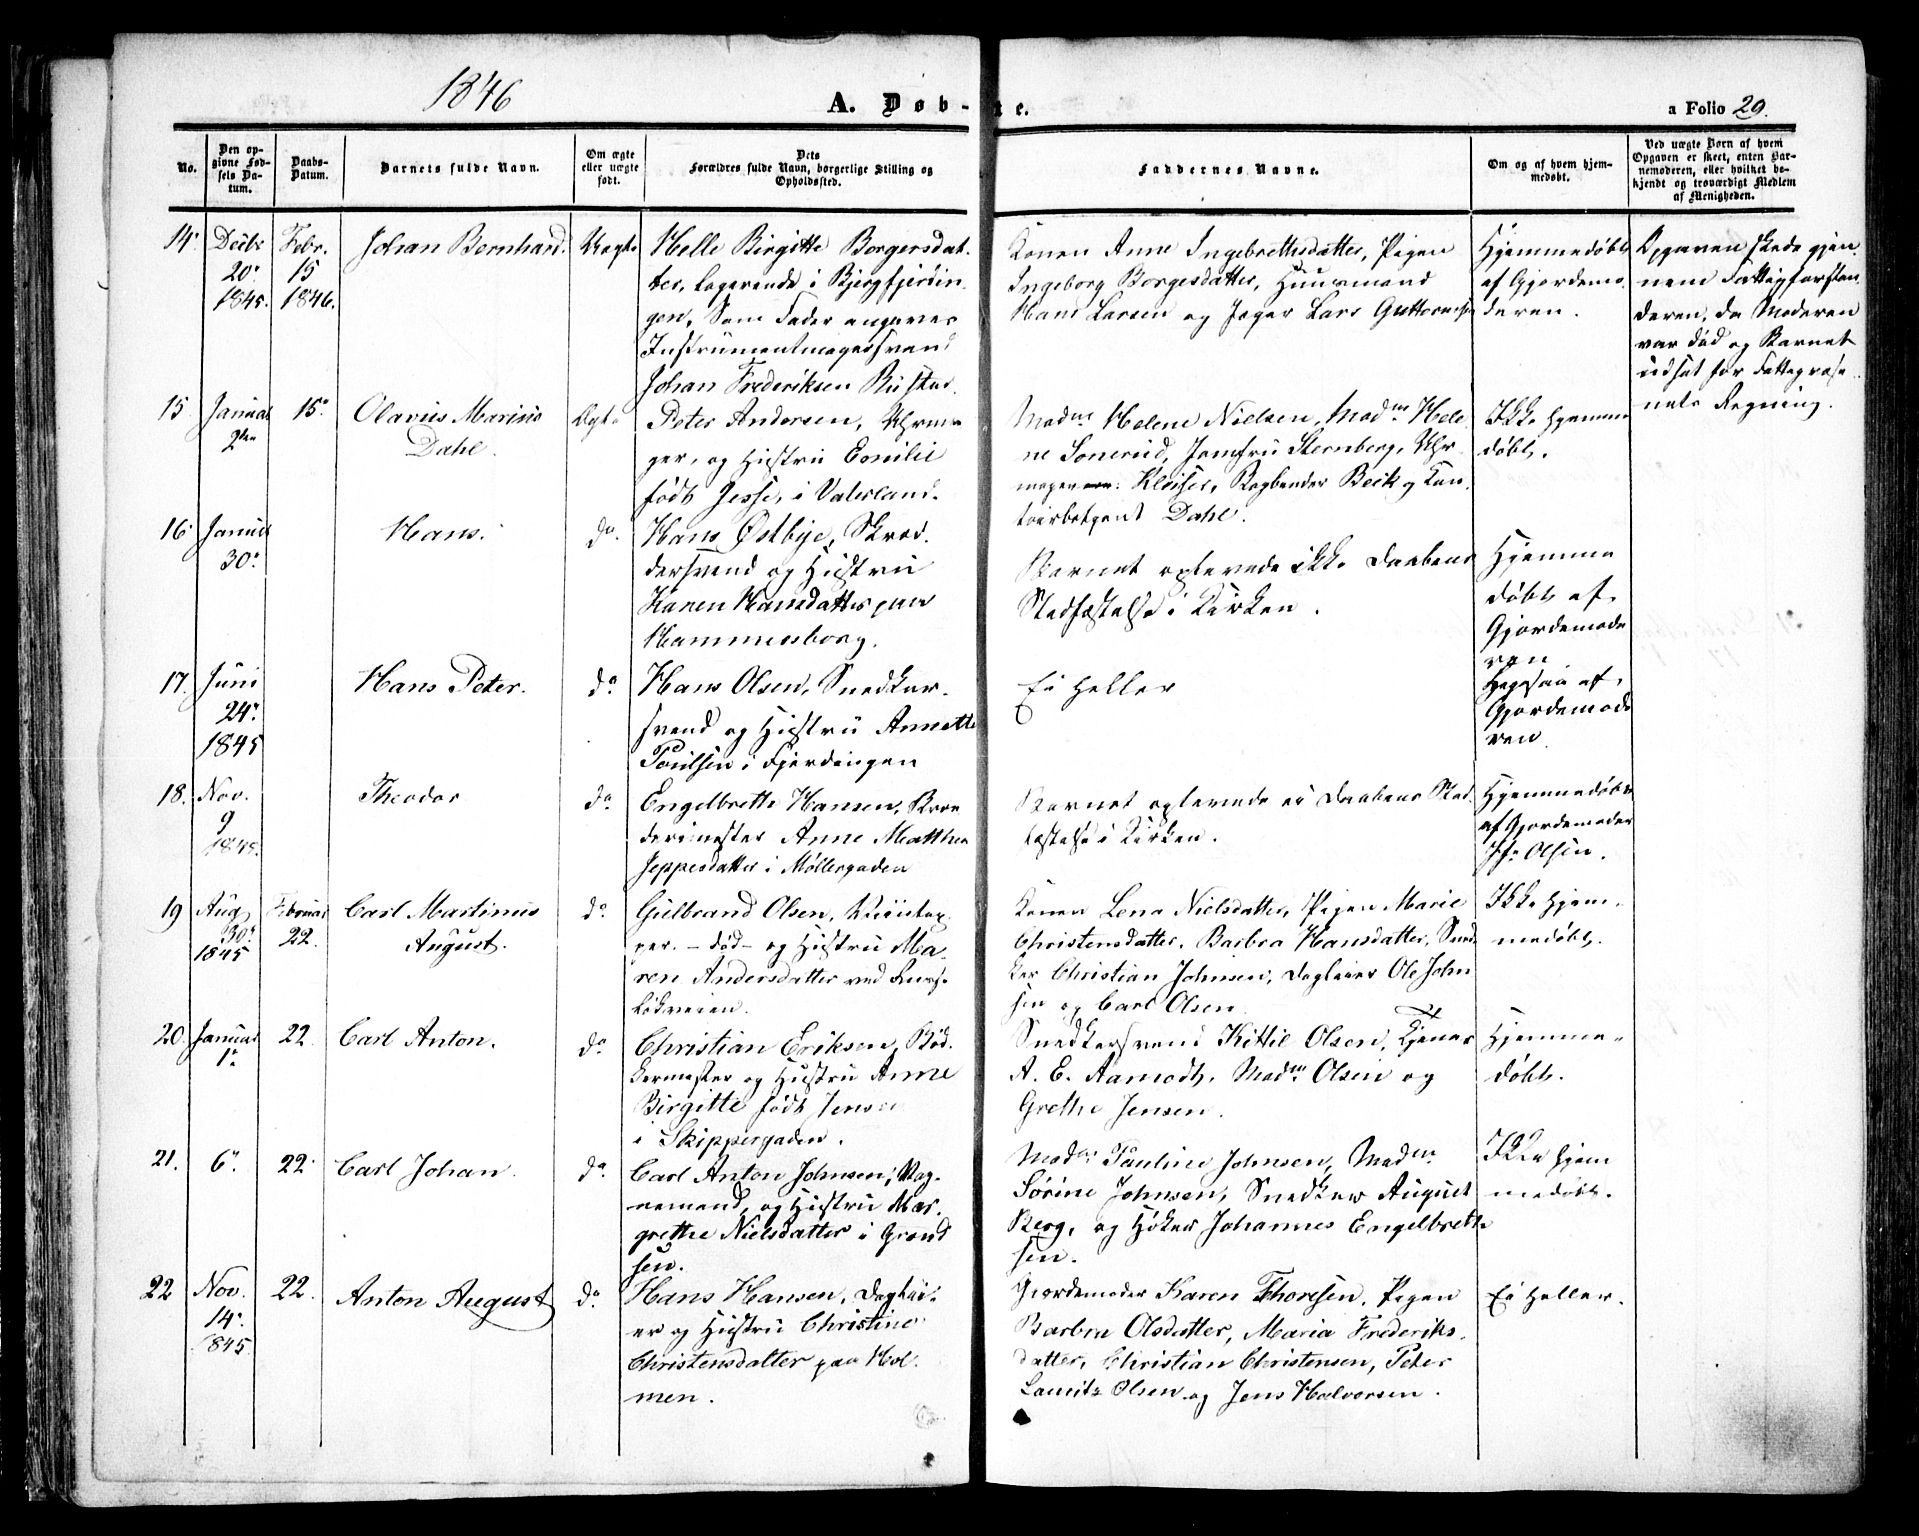 1846
A. Døb-te.
a Folio 29.
No.
Den op-
givne Fød-
sels Da-
tum.
Daabs-
Datum.
Barnets fulde Navn.
Om ægte
eller uægte
født.
Dets
Forældres fulde Navn, borgerlige Stilling og
Opholdssted.
Faddernes Navne.
Om og af hvem hjem-
medøbt.
Ved uægte Børn af hvem
Opgaven er skeet, enten Bar-
nemoderen, eller hvilket be-
kjendt og troværdigt Medlem
af Menigheden.
14.
Decbr
20.
1845.
Febr.
15
1846.
Johan Bernhard.
Uægte
Helle Birgitte Borgersdat-
ter, Logerende i Bjergfjerdin
gen, Som Fader angives
Instrumentmagersvend
Johan Frederiksen Rustad.
Konen Anne Ingebrethsdatter, Pigen
Ingeborg Borgesdatter, Huusmand
Hans Larsen og Jæger Lars Guttormsen
Hjemmedøbt
af Gjordemo
deren.
Opgaven skede gjen
nem Fattigforstan
deren, da Moderen
var død og Barnet
udsat for Fattigvæse
nets Regning.
15
Januar
2den
15.
Olavius Marinus
Dahl.
Ægte
Peter Andersen, Uhrma
ger, og Hustru Emilie
født Jesse, i Vaterland.
Madm Helene Nielsen, Madm Hele
ne Sonerud, Jomfru Sternberg, Uhr
mager Kleiser, Bogbinder Beck og Con
toirbetjent Dahl.
Ikke hjemme
døbt.
16
Januar
30.
Hans.
do.
Hans Østbye, Skræd.
dersvend og Hustru
Karen Hansdatter paa
Hammersborg.
Barnet oplevede ikke Daabens
Stadfæstelse i Kirken.
Hjemme
døbt af
Gjordemode
ren
17.
Juni
24.
1845
Hans Peter.
do.
Hans Olsen, Snedker-
svend og Hustru Annette
Poulsen i Fjerdingen
Ei heller
Ligesaa af
Gjordemode
ren
18.
Nov.
9
1845.
Theodor
do
Engelbreth Hansen, Skræ
dermester Anne Matthea
Jeppesdatter i Møllergaden
Barnet oplevede ei Daabens Stad
fæstelse i Kirken.
Hjemmedøbt
af Gjordemoder
Olsen.
19
Aug
30.
1845
Februar
22.
Carl Martinus
August.
do
Gulbrand Olsen,
per. - død - og Hustru Ma-
ren Andersdatter ved Ruse-
løkveien.
Konen Lena Nielsdatter, Pigen Marie
Christensdatter, Barbra Hansdatter, Sned
ker Christian Johnsen, Dagleier Ole John
sen og Carl Olsen
Ikke hjem-
medøbt.
20.
Januar
1.
22.
Carl Anton.
do
Christian Eriksen, Bød.
kermester og Hustru Anne
Birgitte født Jensen
i Skippergaden.
Snedkersvend Kittil Olsen, Tjener
A. E. Aamodt, Madm Olsen og
Grethe Jensen.
Hjemme-
døbt.
21.
6.
22.
Carl Johan.
do.
Carl Anton Johnsen, Vog-
nemand, og Hustru Mar-
grethe Nielsdatter i Grønd
sen.
Madm Pauline Johnsen, Madm
Sørine Johnsen, Snedker August
Berg, og Høker Johannes Engelbreth
sen.
Ikke hjem
medøbt.
22
Nov.
14.
1845.
22.
Anton August
do.
Hans Hansen, Daglei-
er og Hustru Christine
Christensdatter paa Hol.
men.
Gjordemoder Karen Thoresen, Pigen
Barbra Olsdatter, Maria Frederiks.
datter, Christian Christensen, Peter
Lauritz Olsen og Jens Halvorsen.
Ei heller.